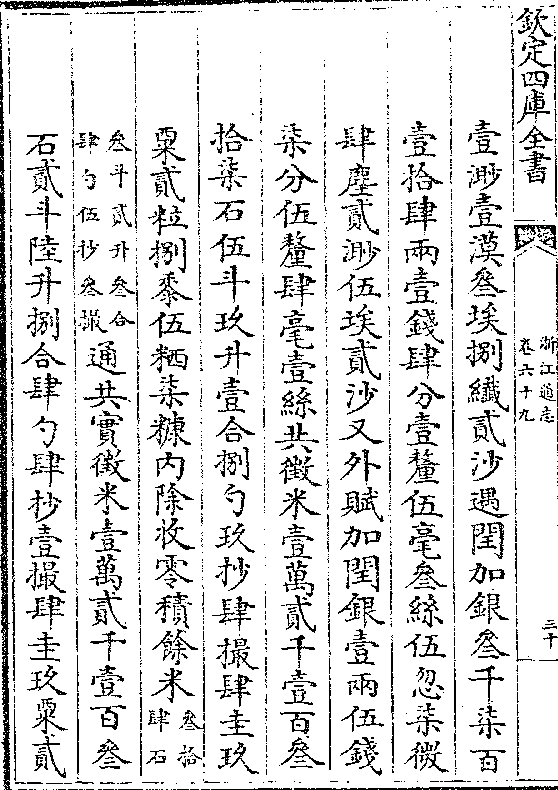 欽定四庫全書
浙江通志
卷六十九
三十
壹渺壹漠叁埃捌纖貳沙遇閏加銀叁千柒百
壹拾肆兩壹錢肆分壹釐伍毫叁絲伍忽柒微
肆塵貳渺伍埃貳沙又外賦加閏銀壹兩伍錢
柒分伍釐肆毫壹絲共徵米壹萬貳千壹百叁
拾柒石伍斗玖升壹合捌勺玖抄肆撮肆圭玖
粟貳粒捌黍伍粞柒糠内除收零積餘米叁拾肆石
叁斗貳升叁合肆勺伍抄叁撮通共實徵米壹萬貳千壹百叁
石貳斗陸升捌合肆勺肆抄壹撮肆圭玖粟貳